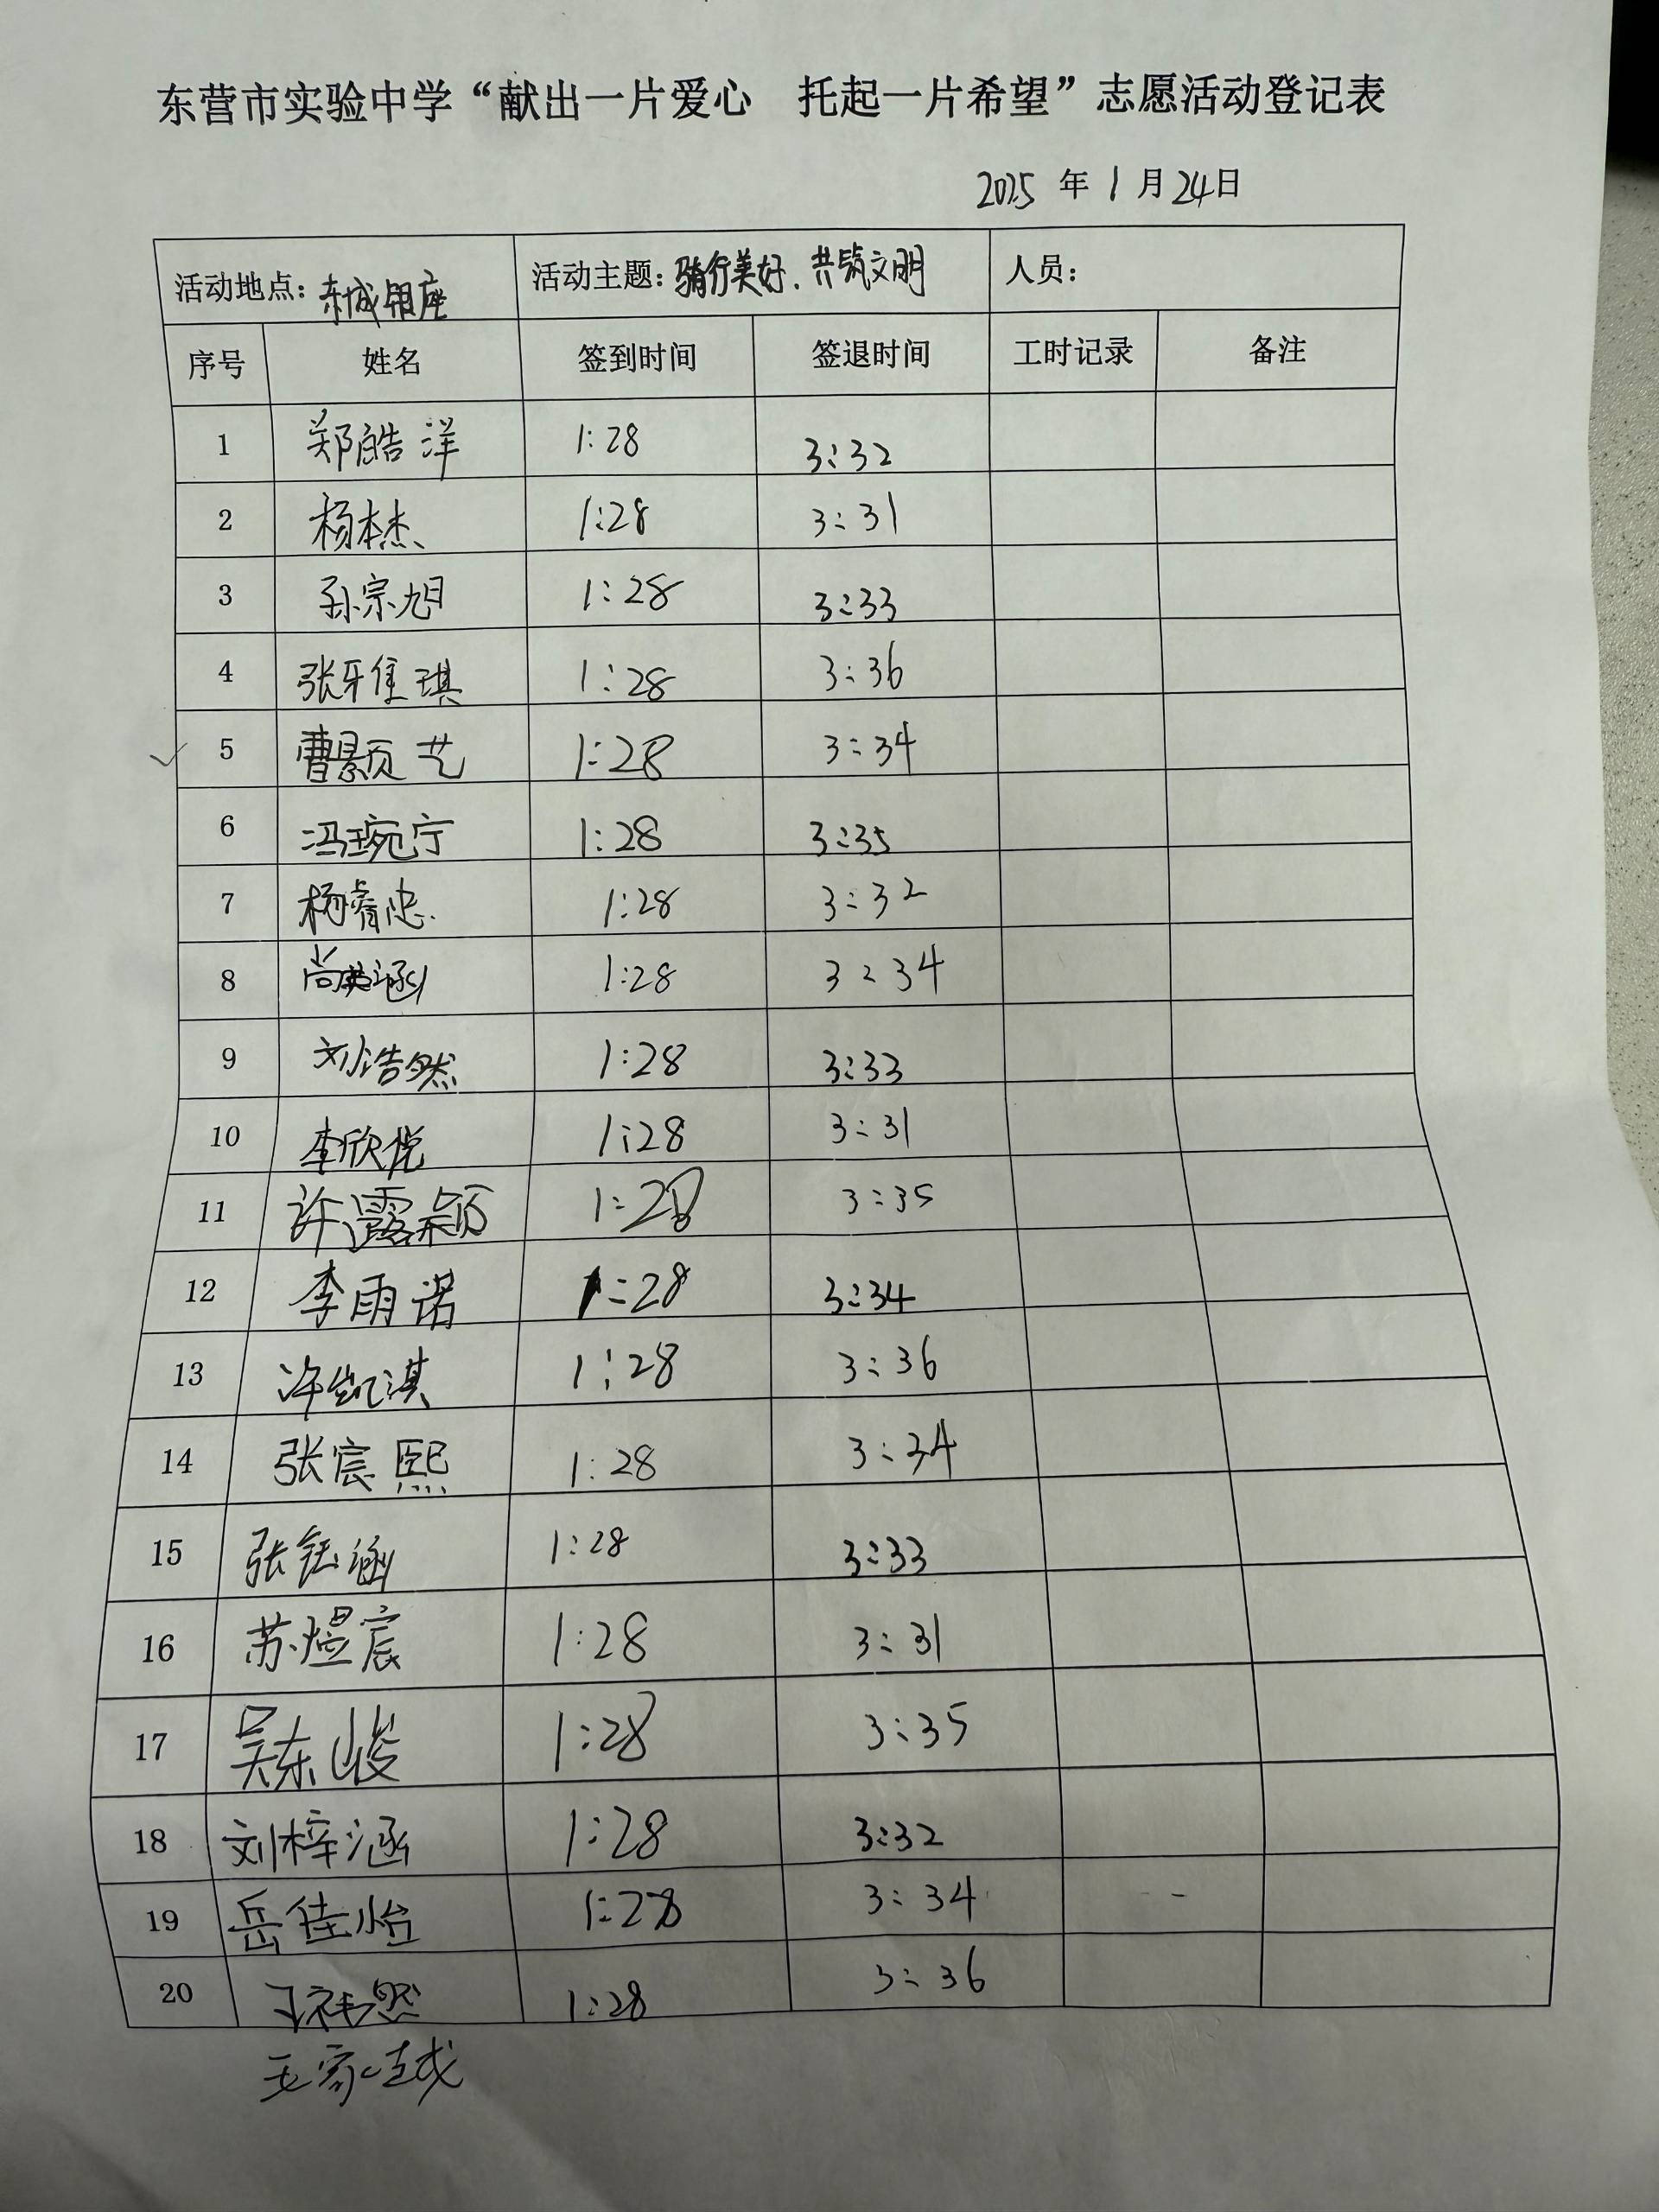 东营市实验中学“献出一片爱心 托起一片希望”志愿活动登记表
2025 年 1 月 24日
活动地点：东城银座 活动主题：骑行美好、共筑文明 人员：
序号 姓名 签到时间 签退时间 工时记录 备注
1 郑皓洋 1:28 3:32
2 杨本杰 1:28 3:31
3 孙宗旭 1:28 3:33
4 张雅琪 1:28 3:36
5 曹颢艺 1:28 3:34
6 冯琬宁 1:28 3:35
7 杨睿忠 1:28 3:32
8 尚 涵 1:28 3:34
9 刘浩然 1:28 3:33
10 李欣悦 1:28 3:31
11 许露颖 1:28 3:35
12 李雨诺 1:28 3:34
13 许凯淇 1:28 3:36
14 张宸熙 1:28 3:34
15 张钰涵 1:28 3:33
16 苏煜宸 1:28 3:31
17 吴东峻 1:28 3:35
18 刘梓涵 1:28 3:32
19 岳佳怡 1:28 3:34
20 1:28 3:36
王家